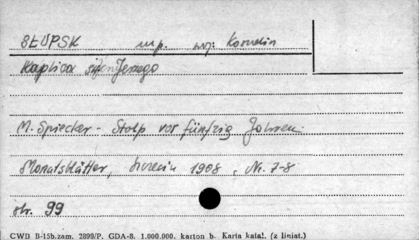 SŁUPSK m.p. woj: Koszalin
Kaplica św. Jerzego
M. Spiecker - Stolp vor fünfzig Jahren.
Monatsblätter, 1908, Nr. 7-8
str. 99
CWD B-15b.zam. 2899/P. GDA-8. 1.000.000. karton b. Karta katal. (z liniat.)